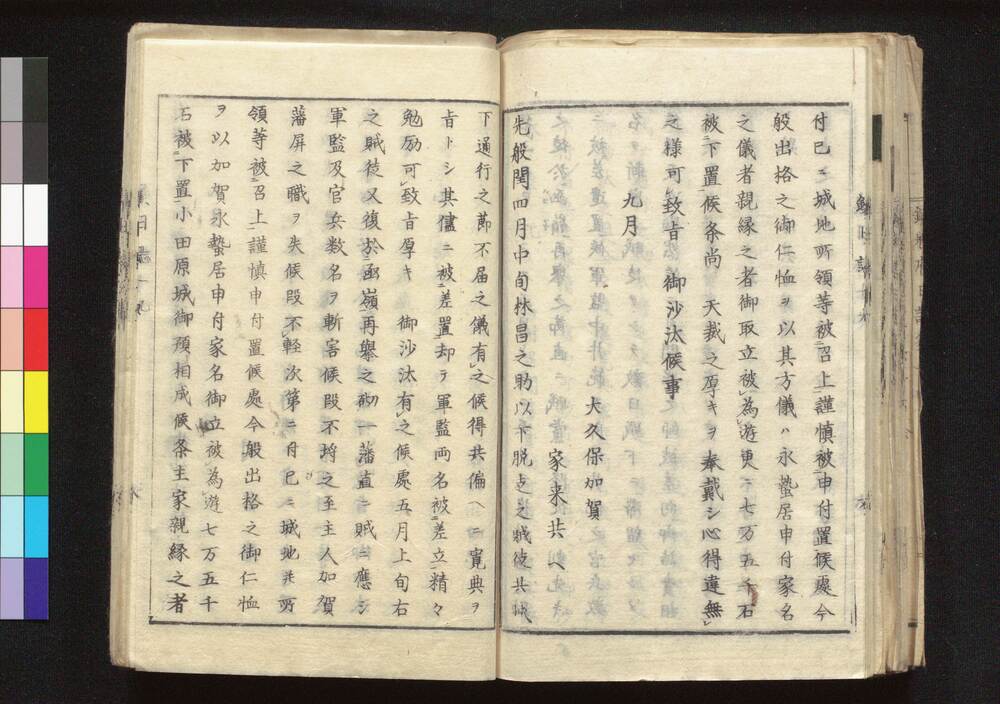 付已ニ城地所領等被召上謹慎被申付置候処今
般出格之御仁恤ヲ以其方儀ハ永蟄居申付家名
之儀者親縁之者御取立被為遊更ニ七万五千石
被下置候条尚　天裁之厚キヲ奉戴シ心得違無
之様可致旨　御沙汰候事
九月　大久保加賀
家来共ヘ
先般閏四月中旬林昌之助以下脱走之賊徒共城
下通行之節不届之儀有之候得共偏ヘニ寛典ヲ
旨トシ其儘ニ被差置却テ軍監両名被差立精々
勉励可致旨厚キ　御沙汰有之候処五月上旬右
之賊徒又復於函嶺再挙之砌一藩直ニ賊ニ應シ
軍監及官兵数名ヲ斬害候段不埒之至主人加賀
藩屏之職ヲ失候段不軽次第ニ付已ニ城地并所
領等被召上謹慎申付置候處今般出格之御仁恤
ヲ以加賀永蟄居申付家名御立被為遊七万五千
石被下置小田原城御預相成候条主家親縁之者